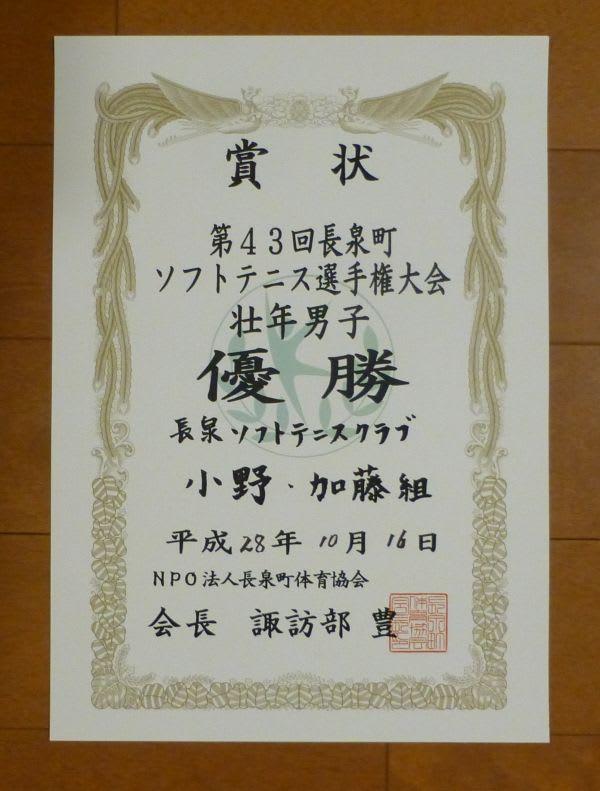 賞状
第43回長泉町
ソフトテニス選手権大会
壮年男子
優勝
長泉ソフトテニスクラブ
小野・加藤組
平成28年10月16日
NPO法人長泉町体育協会
会長 諏訪部 豊